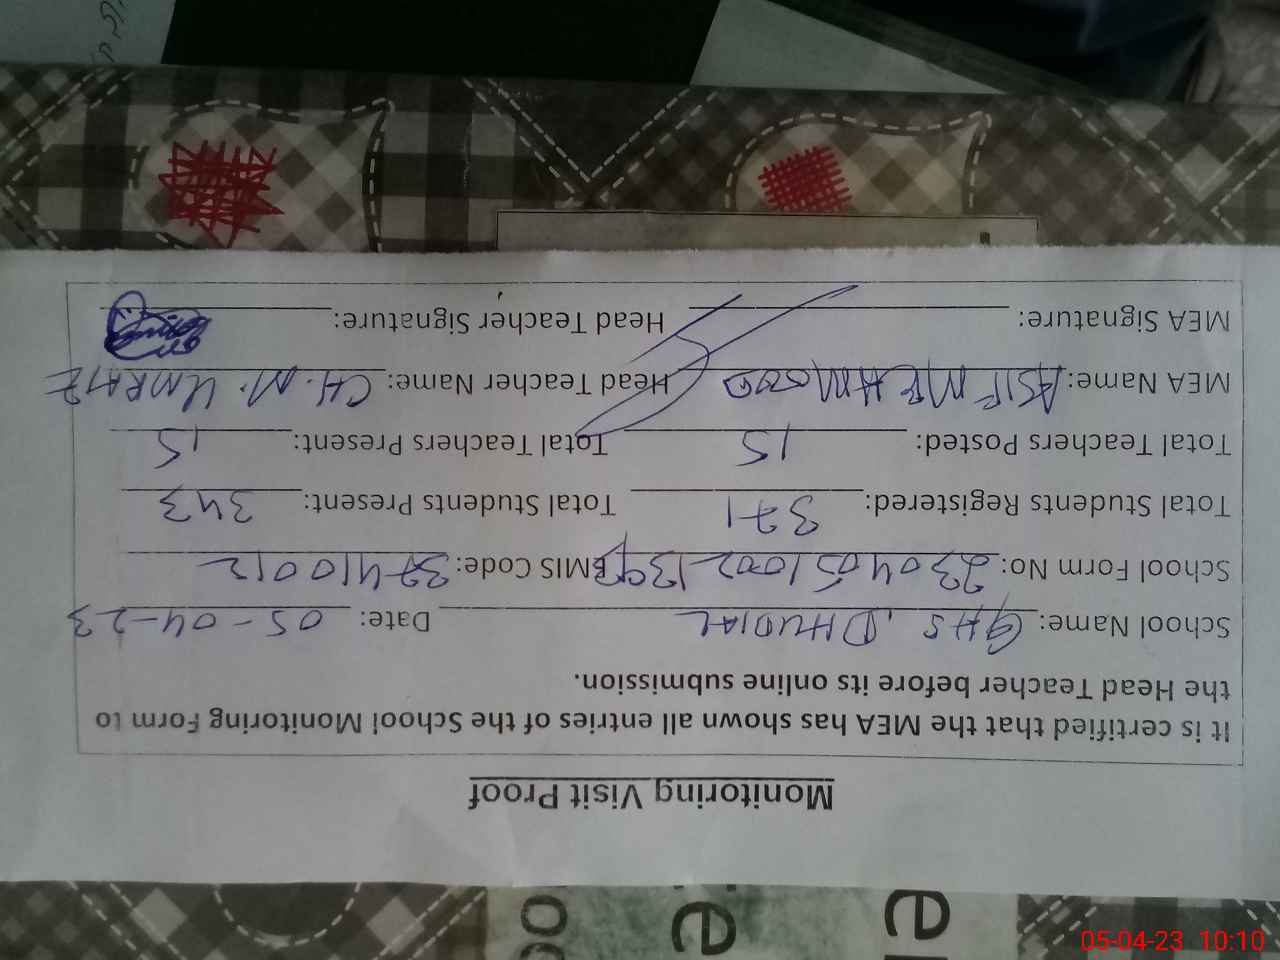 Monitoring Visit Proof
It is certified that the MEA has shown all entries of the School Monitoring Form to
the Head Teacher before its online submission.
School Name: GHS, DHUDIAL Date: 05-04-23
School Form No: EMIS Code: 37410012
Total Students Registered: 371 Total Students Present: 343
Total Teachers Posted: 15 Total Teachers Present: 15
MEA Name: ASIF MEHMOOD Head Teacher Name: CH. M. UMRAIZ
MEA Signature: Head Teacher Signature:
05-04-23 10:10